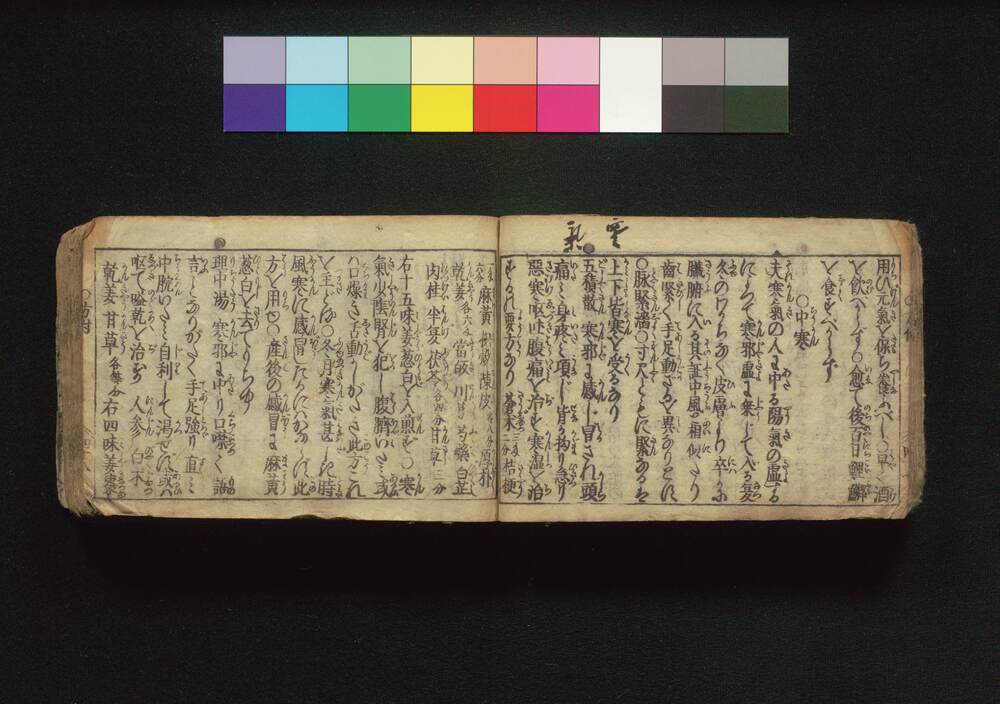 用ひ元氣を保ち養ふべし〇早く酒
を飲べからず〇愈て後百日鯉鱠
を食すべからず
〇中寒
夫寒は氣の人に中る陽氣の虚する
によつて寒邪虚に乗じて入る夏
冬のわかちなく皮層より卒に
臟腑に入る其証中風と相似たり
齒緊く手足動ざるを異なりとす
〇脉緊濇〇寸尺ともに緊なるは
上下皆寒を受るなり
五積散 寒邪に感し冒され頭
痛み身疼み項し皆拘り急り
惡寒き嘔吐腹痛を治す寒濕を治
蒼朮 桔梗
麻黄 枳殻 陳皮 厚朴
乾姜 當皈 川芎 芍藥 白芷
肉桂 半夏 茯苓 各四分 甘草 三分
右十五味姜葱白を入煎ず〇寒
氣少陰腎を犯し腹臍いたみ或
ハ口燥き舌動しがたき此方これ
を主どる〇冬月寒氣甚しき時
風寒に感冒したるにハかならず此
方を用ゆ〇産後の感冒に麻黄
葱白を去てもちゆ
理中湯 寒邪に中り口噤く
言ことなりがたく手足強り直こと
中脘いたみ自利して渇せず或ハ
嘔て 治す 人参 白朮
乾姜 甘草 各等分 右四味姜棗
〇方付